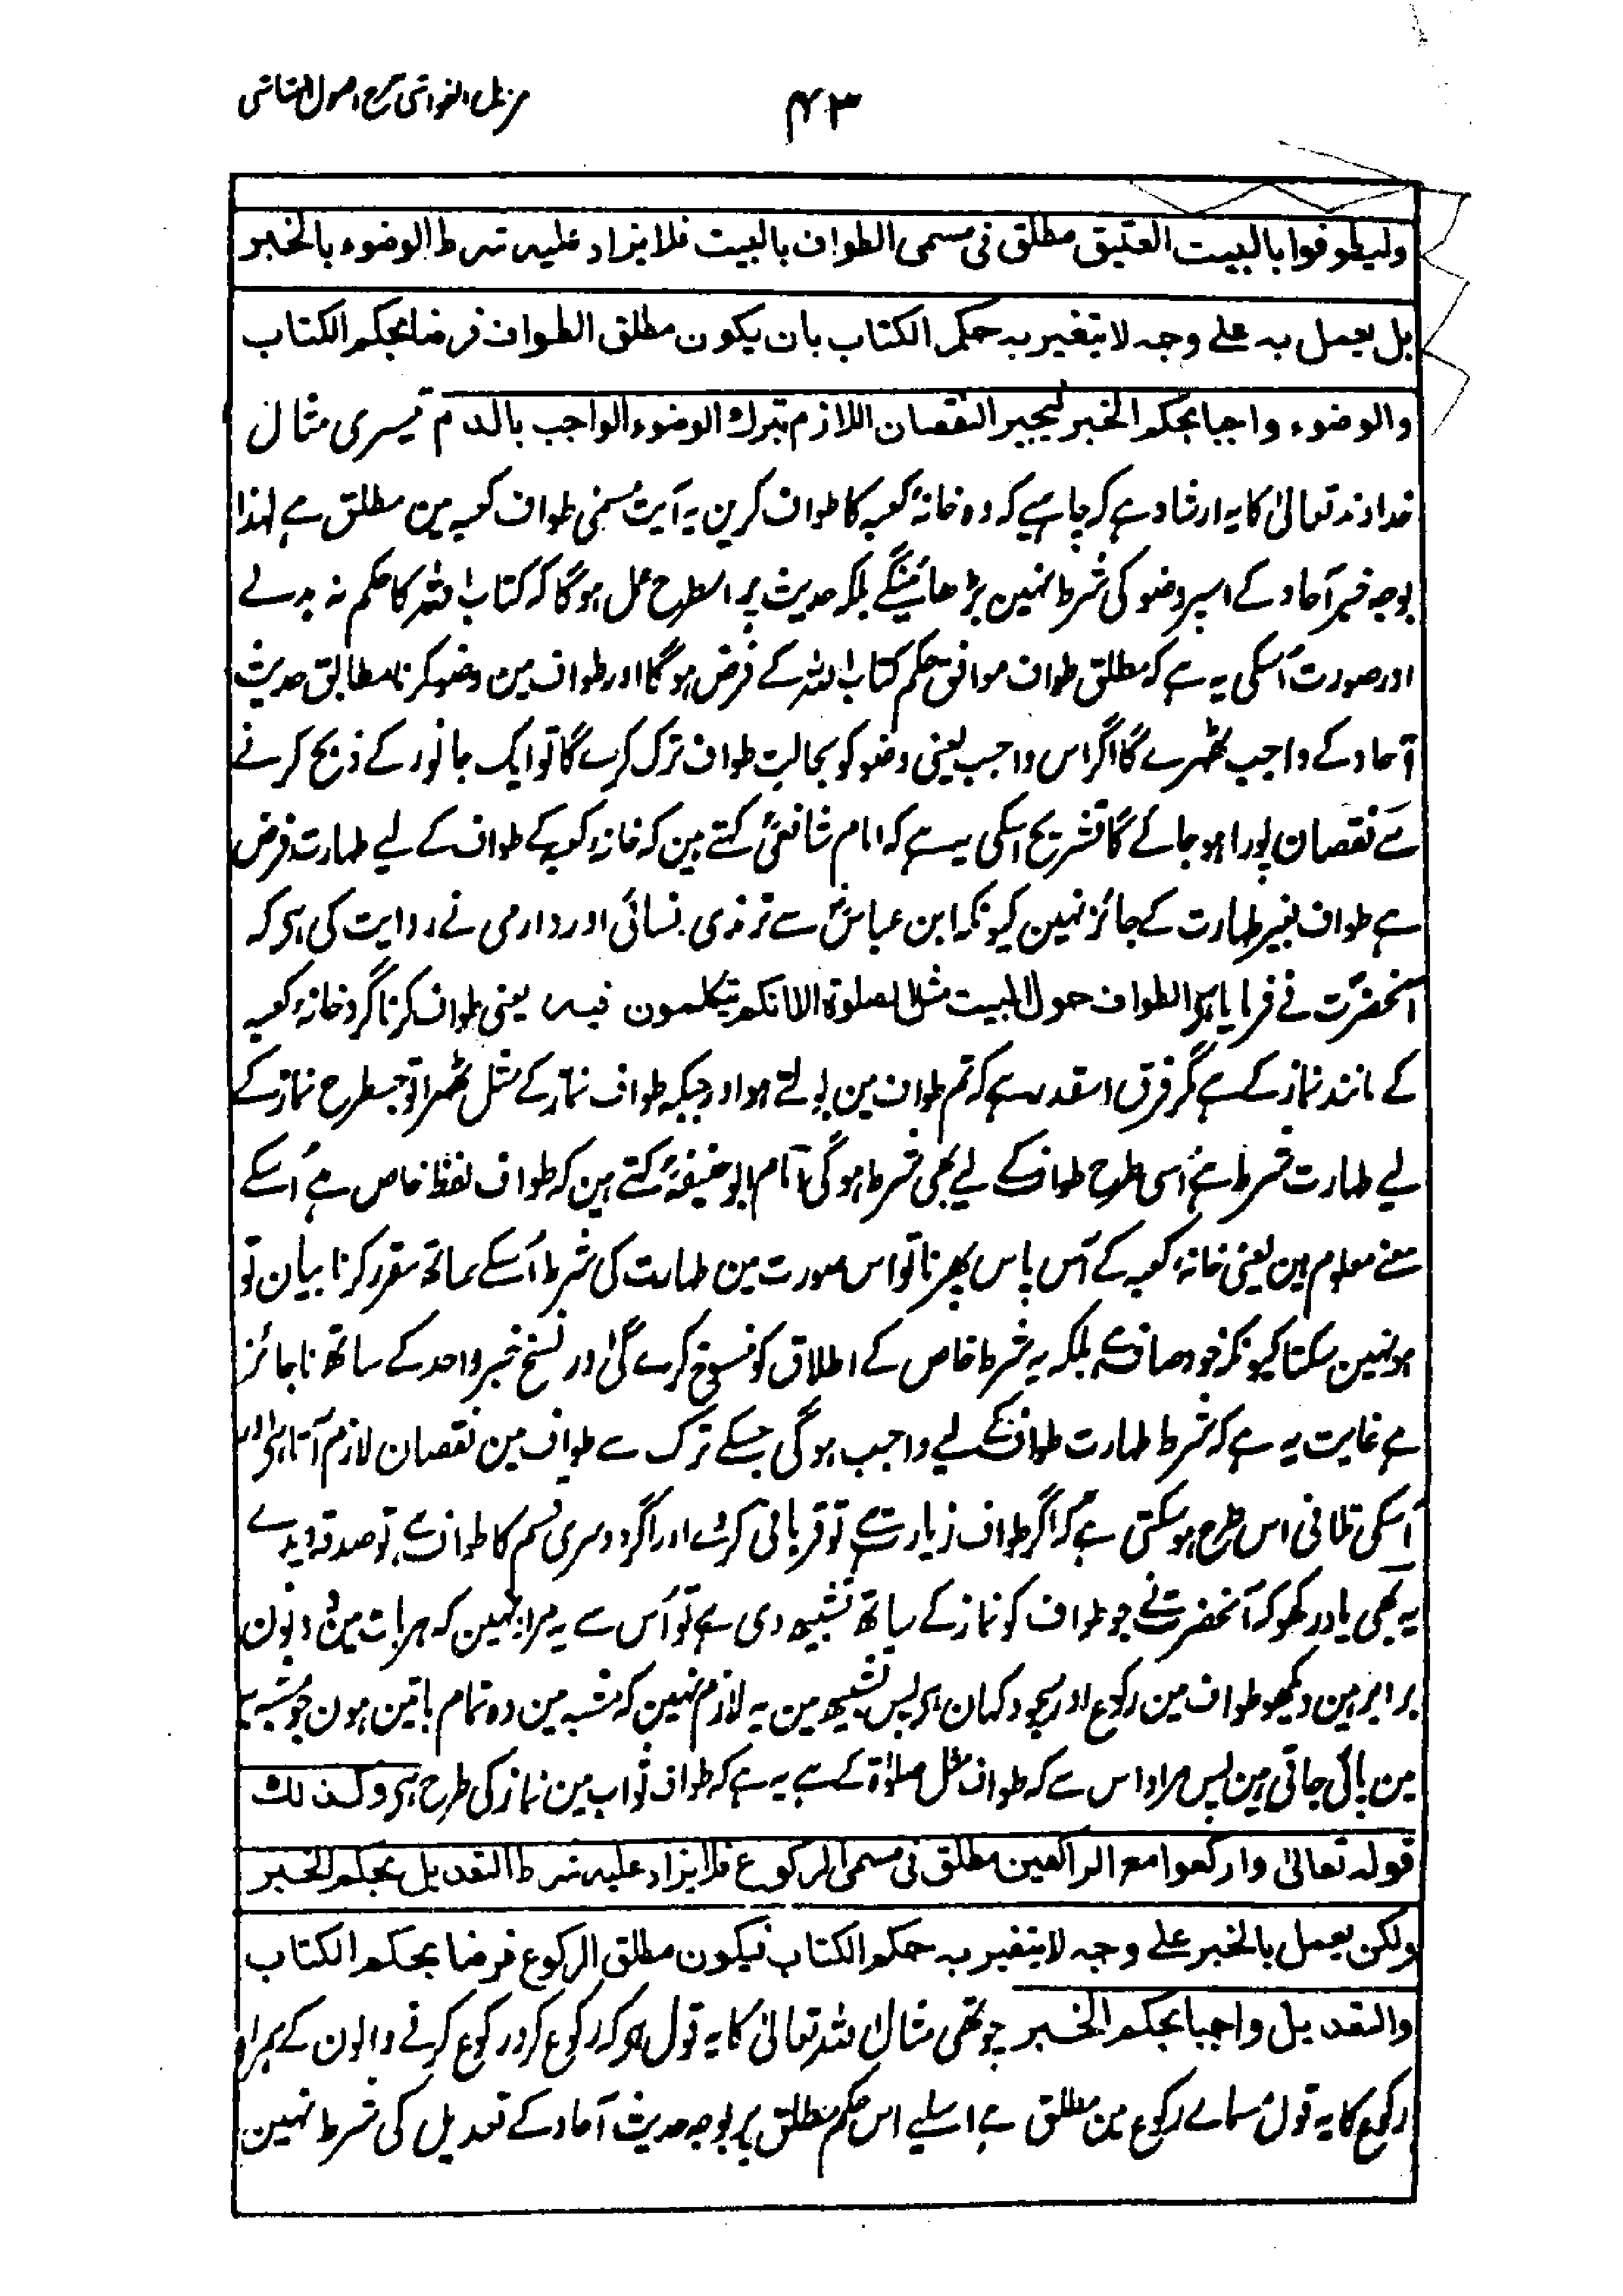 مزیل الغواشی شرح اصول الشاشی
۴۳
ولیطوفوا بالبیت العتیق مطلق فی مسمی الطواف بالبیت فلا یزاد علیہ شرط الوضوء بالخبر
بل یعمل بہ علے وجہ لا یتغیر بہ حکم الکتاب بان یکون مطلق الطواف فرضا بحکم الکتاب
والوضوء واجبا بحکم الخبر لیجبر النقصان اللازم بترك الوضوء الواجب بالدم تیسری مثال
خداوند تعالیٰ کا یہ ارشاد ہے کہ چاہیے کہ وہ خانۂ کعبہ کا طواف کرین یہ آیت مسمیٰ طواف کعبہ مین مطلق ہے لہذا
بوجہ خبر آحاد کے اسپر وضو کی شرط نہین بڑھائینگے بلکہ حدیث پر اسطرح عمل ہوگا کہ کتاب اللہ کا حکم نہ بدلے
اور صورت اُسکی یہ ہے کہ مطلق طواف موافق حکم کتاب اللہ کے فرض ہوگا اور طواف مین وضو کرنا مطابق حدیث
آحاد کے واجب ٹھرے گا اگر اس واجب یعنی وضو کو بحالت طواف ترک کرے گا تو ایک جانور کے ذبح کرنے
سے نقصان پورا ہو جائے گا تشریح اسکی یہ ہے کہ امام شافعیؒ کہتے ہین کہ خانۂ کعبہ کے طواف کے لیے طہارت فرض
ہے طواف بغیر طہارت کے جائز نہین کیونکہ ابن عباسؓ سے ترمذی نسائی اور دارمی نے روایت کی ہی کہ
آنحضرتؐ نے فرمایا ہی الطواف حول البیت مثل الصلوۃ الا انکم تتکلمون فیہ یعنی طواف کرنا گرد خانۂ کعبہ
کے مانند نماز کے ہے مگر فرق اسقدر ہے کہ تم طواف مین بولتے ہو اور جبکہ طواف نماز کے مثل ٹھرا تو جسطرح نماز کے
لیے طہارت شرط ہے اُسی طرح طواف کے لیے بھی شرط ہوگی امام ابو حنیفہؒ کہتے ہین کہ طواف لفظ خاص ہے اُسکے
معنے معلوم ہین یعنی خانۂ کعبہ کے آس پاس پھرنا تو اس صورت مین طہارت کی شرط اُسکے ساتھ مقرر کرنا بیان تو
ہو نہین سکتا کیونکہ خود صاف ہے بلکہ یہ شرط خاص کے اطلاق کو منسوخ کرے گی اور نسخ خبر واحد کے ساتھ ناجائز
ہے غایت یہ ہے کہ شرط طہارت طواف کے لیے واجب ہوگی جسکے ترک سے طواف مین نقصان لازم آتا ہی اور
اُسکی تلافی اس طرح ہو سکتی ہے کہ اگر طواف زیارت ہے تو قربانی کرے اور اگر دوسری قسم کا طواف ہے تو صدقہ دیدے
یہ بھی یاد رکھو کہ آنحضرتؐ نے جو طواف کو نماز کے ساتھ تشبیہ دی ہے تو اُس سے یہ مراد نہین کہ ہر بات مین دونون
برابر ہین دیکھو طواف مین رکوع اور سجود کہان ہی پس تشبیہ مین یہ لازم نہین کہ مشبہ مین وہ تمام باتین ہون جو مشبہ بہ
مین پائی جاتی ہین پس مراد اس سے کہ طواف مثل صلوٰۃ کے ہے یہ ہے کہ طواف ثواب مین نماز کی طرح ہی وکذلك
قولہ تعالیٰ وارکعوا مع الراکعین مطلق فی مسمی الرکوع فلا یزاد علیہ شرط التعدیل بحکم الخبر
ولکن یعمل بالخبر علے وجہ لا یتغیر بہ حکم الکتاب فیکون مطلق الرکوع فرضا بحکم الکتاب
والتعدیل واجبا بحکم الخبر چوتھی مثال اللہ تعالیٰ کا یہ قول ہی کہ رکوع کرو رکوع کرنے والون کے ہمراہ
رکوع کا یہ قول مسمائے رکوع مین مطلق ہے اسلیے اس حکم مطلق پر بوجہ حدیث آحاد کے تعدیل کی شرط نہین